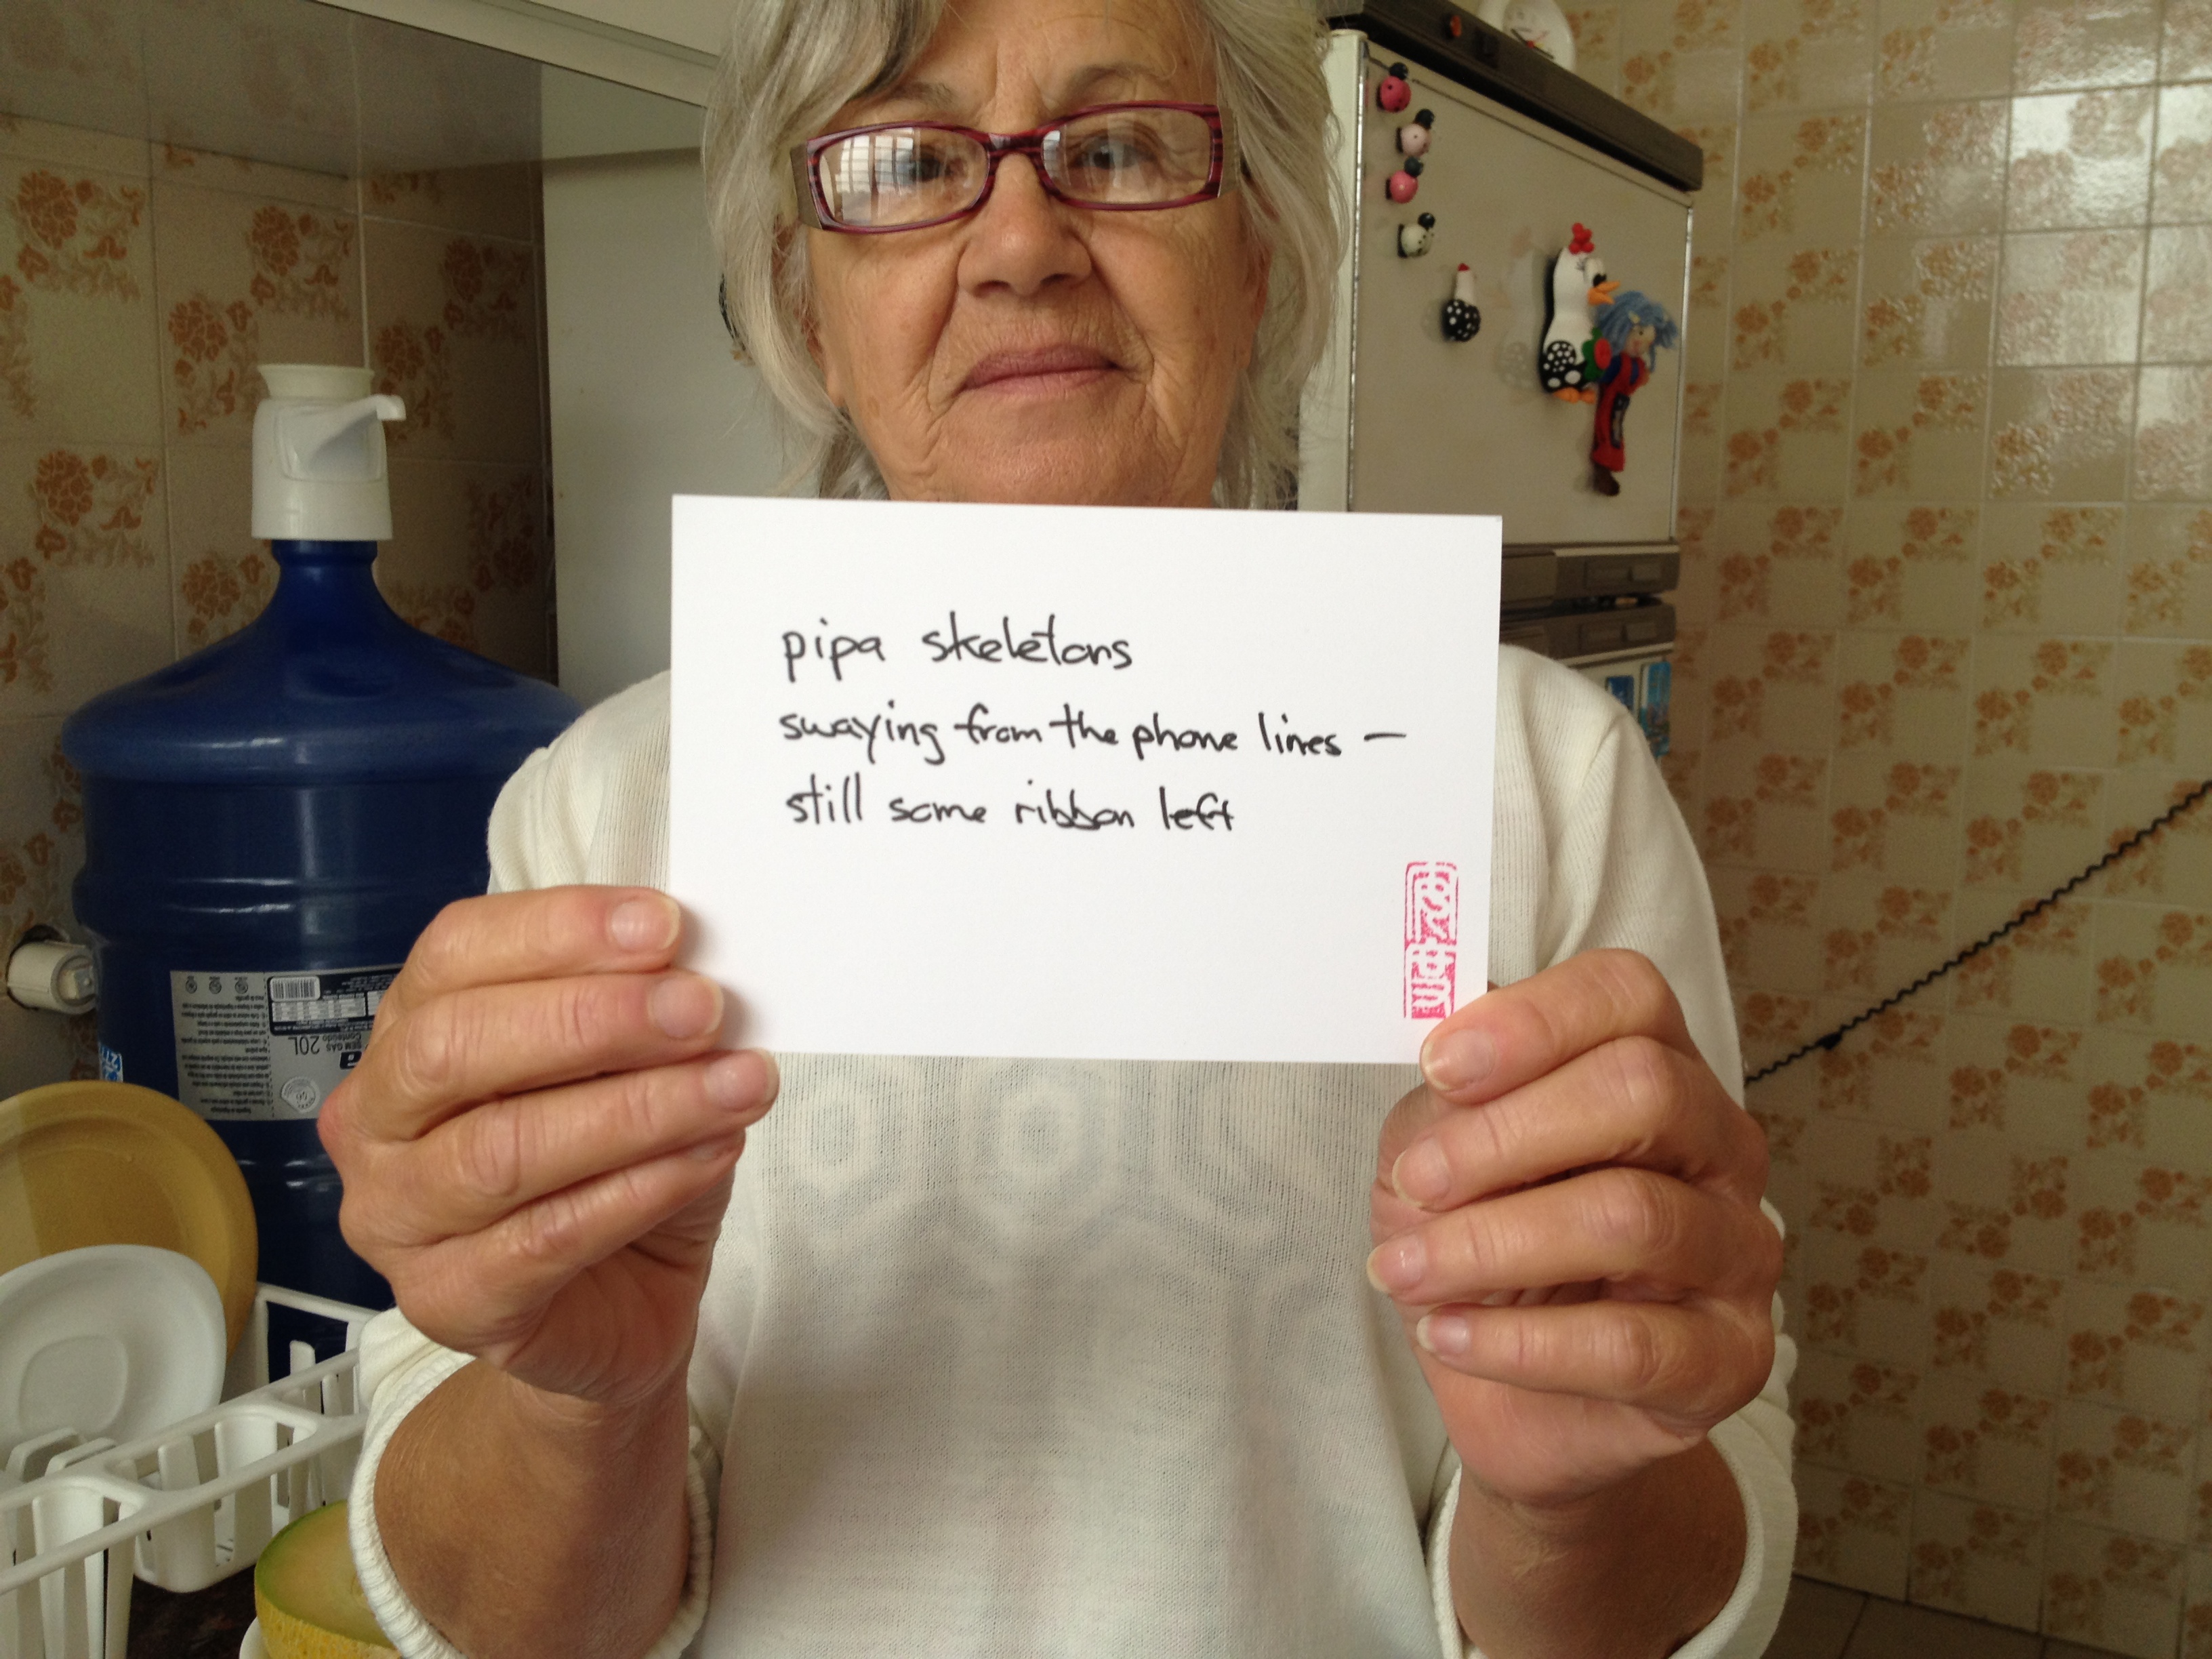 pipa skeletons
swaying from the phone lines —
still some ribbon left
SEM GÁS
Conteúdo
20L